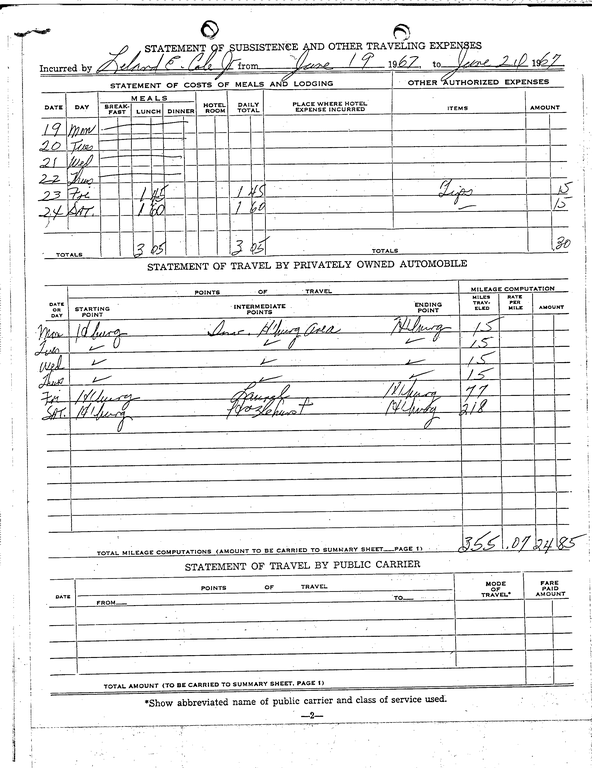 STATEMENT OF SUBSISTENCE AND OTHER TRAVELING EXPENSES
Incurred by Leland E. Cole Jr from June 19 1967 to June 24 1967
STATEMENT OF COSTS OF MEALS AND LODGING OTHER AUTHORIZED EXPENSES
MEALS
DATE DAY BREAK-FAST LUNCH DINNER HOTEL ROOM DAILY TOTAL PLACE WHERE HOTEL EXPENSE INCURRED ITEMS AMOUNT
19 Mon
20 Tues
21 Wed
22 Thurs
23 Fri 1 45 1 45 Tips 15
24 SAT. 1 60 1 60 15
TOTALS 3 05 3 05 TOTALS 30
STATEMENT OF TRAVEL BY PRIVATELY OWNED AUTOMOBILE
POINTS OF TRAVEL MILEAGE COMPUTATION
DATE OR DAY STARTING POINT INTERMEDIATE POINTS ENDING POINT MILES TRAV-ELED RATE PER MILE AMOUNT
Mon H'burg H'burg Area H'burg 15
Tues ✓ ✓ ✓ 15
Wed ✓ ✓ ✓ 15
Thurs ✓ ✓ ✓ 15
Fri H'burg H'burg 77
SAT. H'burg Hazlehurst H'burg 218
TOTAL MILEAGE COMPUTATIONS (AMOUNT TO BE CARRIED TO SUMMARY SHEET PAGE 1) 355 .07 24 85
STATEMENT OF TRAVEL BY PUBLIC CARRIER
DATE POINTS OF TRAVEL MODE OF TRAVEL* FARE PAID AMOUNT
FROM TO
TOTAL AMOUNT (TO BE CARRIED TO SUMMARY SHEET, PAGE 1)
*Show abbreviated name of public carrier and class of service used.
—2—